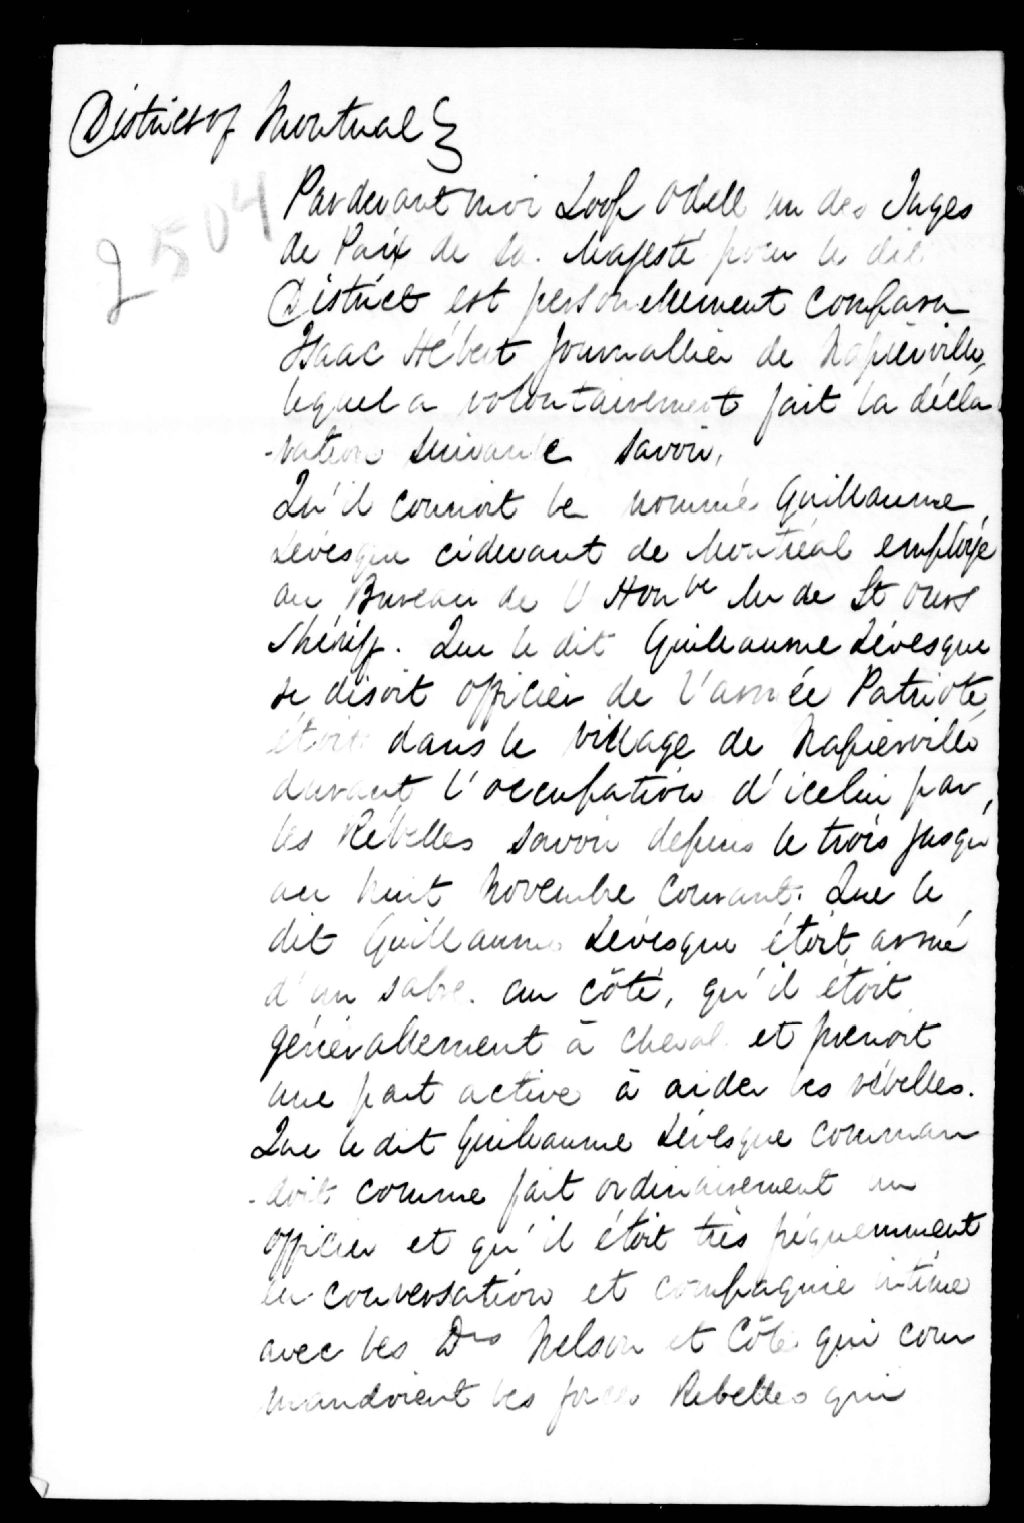 District of Montreal
2504
Pardevant moi Loop Odell un des Juges
de Paix de Sa Majesté pour le dit
District est personellement comparu
Isaac Hébert Journallier de Napierville,
lequel a volontairement fait la décla
-ration suivante savoir,
Qu'il connoit le nommé Guillaume
Lévesque cidevant de Montréal employé
au Bureau de l'Honble Mr de St Ours
Shériff. Que le dit Guillaume Lévesque
se disoit officier de l'armée Patriote,
étoit dans le village de Napierville
durant l'occupation d'icelui par,
les Rébelles savoir depuis le trois jusqu'
au huit Novembre courant. Que le
dit Guillaume Lévesque étoit armé
d'un sabre au côté, qu'il étoit
générallement à cheval et prenoit
une part active à aider les rébelles.
Que le dit Guillaume Lévesque comman
-doit comme fait ordinairement un
officier et qu'il étoit très fréquemment
en conversation et compagnie intime
avec les Drs Nelson et Côté qui com
mandoient les forces Rebelles qui